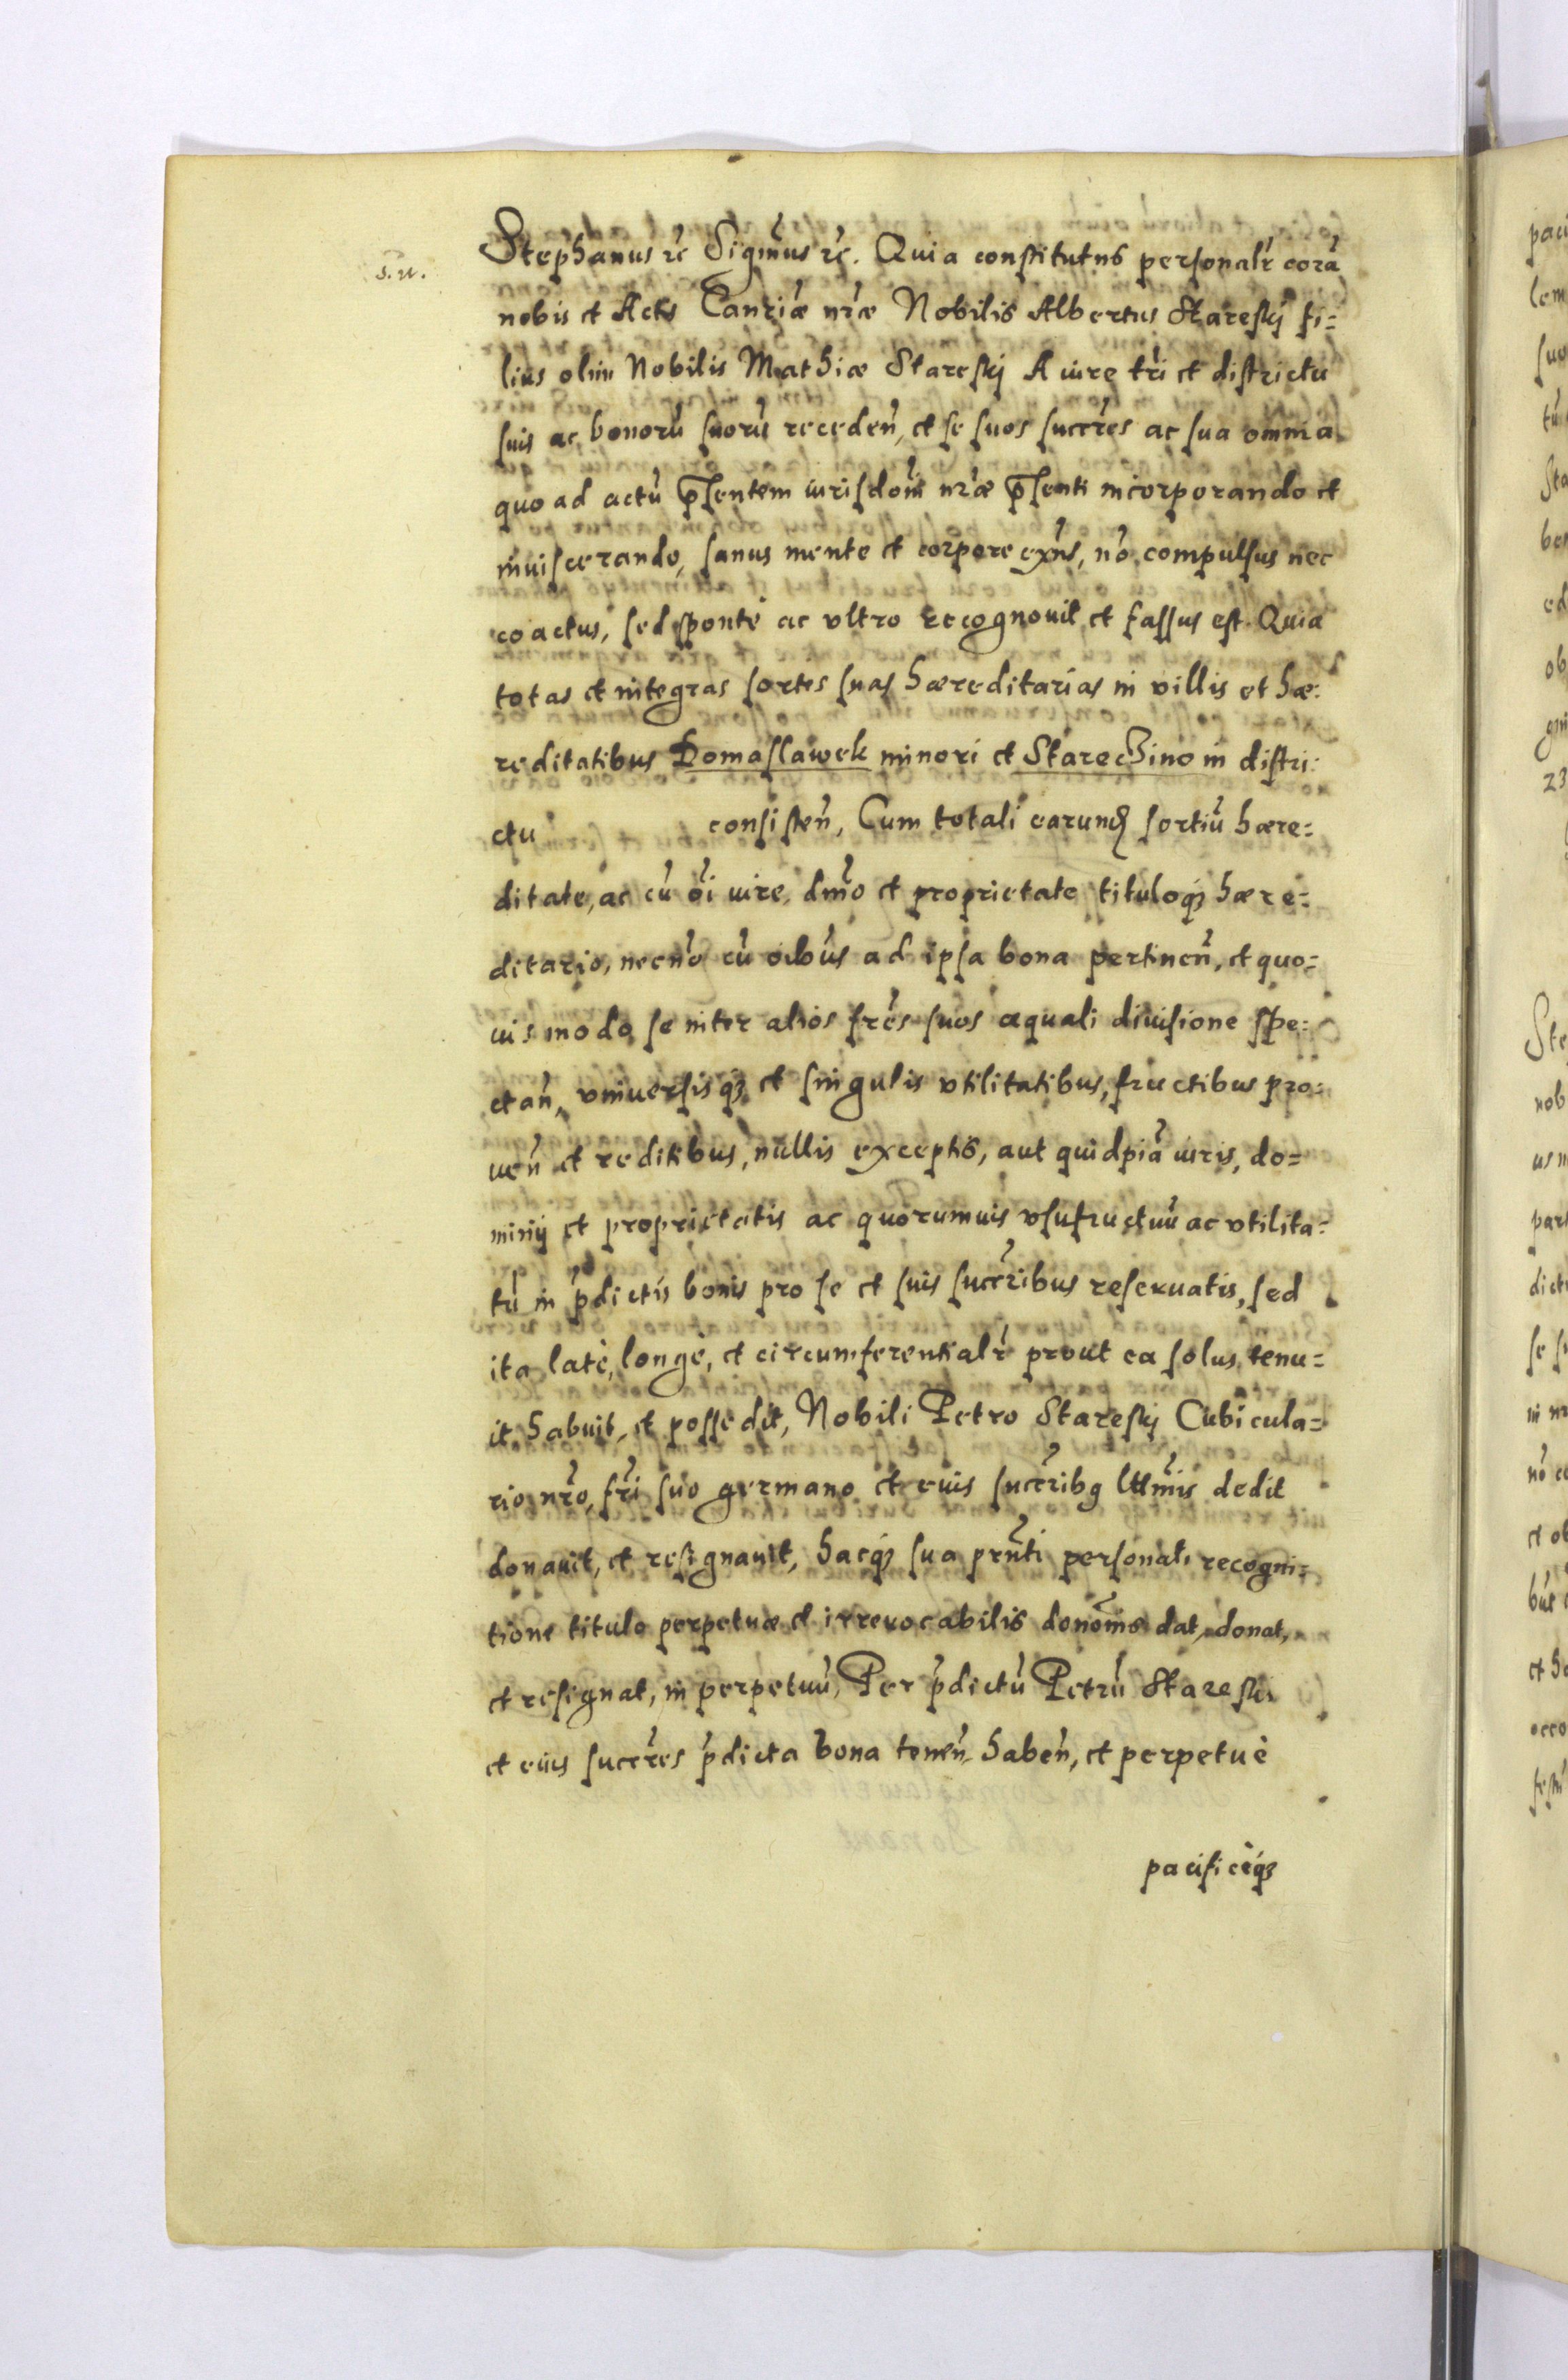 s. n.
Stephanus rc̃ Signus̃ rc̃. Quia constitutus personalr̃ corã
nobis et Actis Canriæ nr̃æ Nobilis Albertus Stareskj fi=
lius olim Nobilis Mathiæ Stareskj A iure trĩ et districtu
suis ac bonorũ suorũ receden̄, et se suos succr̃es ac sua omnia
quo ad actũ p̄sentem iurisdom̃i nr̃æ p̄senti incorporando et
inuiscerando, sanus mente et corpore exñs, nõ compulsus nec
coactus, sed sponte ac vltro recognouit et fassus est. Quia
totas et integras sortes suas hæreditarias in villis et hæ:
reditatibus Domaslawek minori et Stareczino in distri:
ctu consisten̄, Cum totali earund̄ sortiũ hære=
ditate, ac cũ oĩ iure, dmĩo et proprietate tituloq3 hære=
ditario, necnõ cũ oĩbus ad ipsa bona pertinen̄, et quo=
uis modo se inter alios frẽs suos æquali diuisione spe=
ctan̄, vniuersisq3 et singulis vtilitatibus, fructibus pro=
uen̄ et reditibus, nullis exceptis, aut quidpiã iuris, do=
minij et proprietatis ac quorumuis vsufructuũ ac vtilita=
tũ in p̃dictis bonis pro se et suis succr̃ibus reseruatis, sed
ita latè, longè, et circumferentialr̃ prout ea solus tenu=
it habuit, et possedit, Nobili Petro Stareskj Cubicula=
rio nr̃o, frĩ suo germano et eius succr̃ibg lttmĩs dedit
donauit, et resignauit, hacq3 sua prñti personali recogni=
tione titulo perpetuæ et irreuocabilis donom̃s dat, donat,
et resignat, in perpetuũ, Per p̃dictũ Petrũ Stareski
et eius succr̃es p̃dicta bona tenen̄, haben̄, et perpetuè
pacificèq3